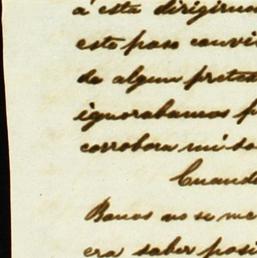 á esta dirigirnos
este paso convi
do algun pretex
ignorabamos p
corrobora mi so
Cuando
Bancos no se me
era saber posi